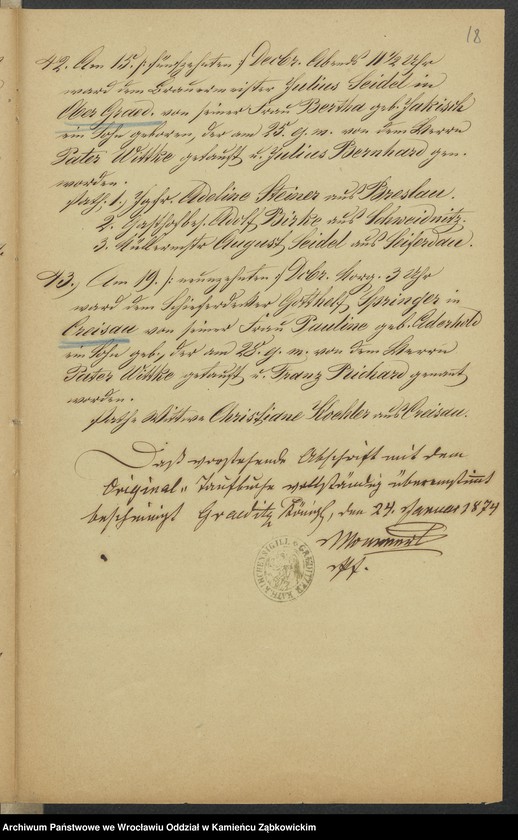 18
42. Am 15. /: fünfzehnten :/ Decbr. Abends 11½ Uhr
ward dem Brauermeister Julius Seidel in
Ober Graed. von seiner Frau Bertha geb. Jakisch
ein Sohn geboren, der am 25. ej. m. von dem Herrn
Pater Wittke getauft u. Julius Bernhard gen.
worden.
Path. 1. Jgfr. Adeline Steiner aus Breslau.
2. Adolf Birke aus Schweidnitz.
3. Müllermstr August Seidel aus Seiferdau.
43. Am 19. /: neunzehnten :/ Dcbr. Morg. 3 Uhr
ward dem Schieferdecker Gotthelf Springer in
Creisau von seiner Frau Pauline geb. Aderhold
ein Sohn geb., der am 28. ej. m. von dem Herrn
Pater Wittke getauft u. Franz Reichard genant
worden.
Pathe Wittwe Christiane Koehler aus Creisau.
Daß vorstehende Abschrift mit dem
Original-Taufbuche vollständig übereinstimmt
bescheinigt Graeditz Königl., den 24. Januar 1874
Mommert
Pf.
Archiwum Państwowe we Wrocławiu Oddział w Kamieńcu Ząbkowickim